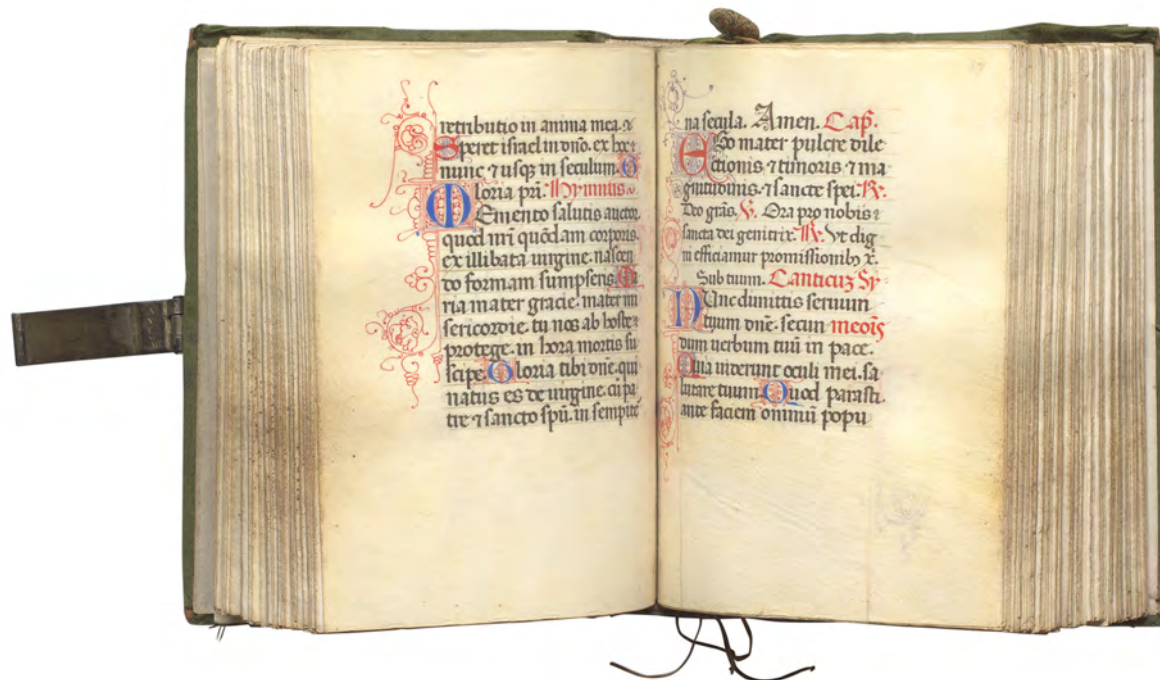 retributio in anima mea. ⁊
Speret israel in dn̄o. ex hoc
nunc ⁊ usq̄ in seculum. G
loria pr̄i. Hymnus.
MEmento salutis auctor
quod nr̄i quōdam corporis.
ex illibata uirgine. nascen
do formam sumpseris. Ma
ria mater gracie. mater mi
sericordie. tu nos ab hoste
protege. in hora mortis su
scipe. Gloria tibi dn̄e. qui
natus es de uirgine. cū pa
tre ⁊ sancto spū. in sempite
na secula. Amen. Cap̄.
EGo mater pulcre dile
ctionis ⁊ timoris ⁊ ma
gnitudinis. ⁊ sancte spei. ℟.
Deo grās. ℣. Ora pro nobis
sancta dei genitrix. ℟. Vt dig
ni efficiamur promissionibꝫ x̄.
Sub tuum. Canticuꝫ Sy
NUnc dimittis seruum
tuum dn̄e. secun meoīs
dum uerbum tuū in pace.
Quia uiderunt oculi mei. sa
lutare tuum. Quod parasti.
ante faciem omniū popu